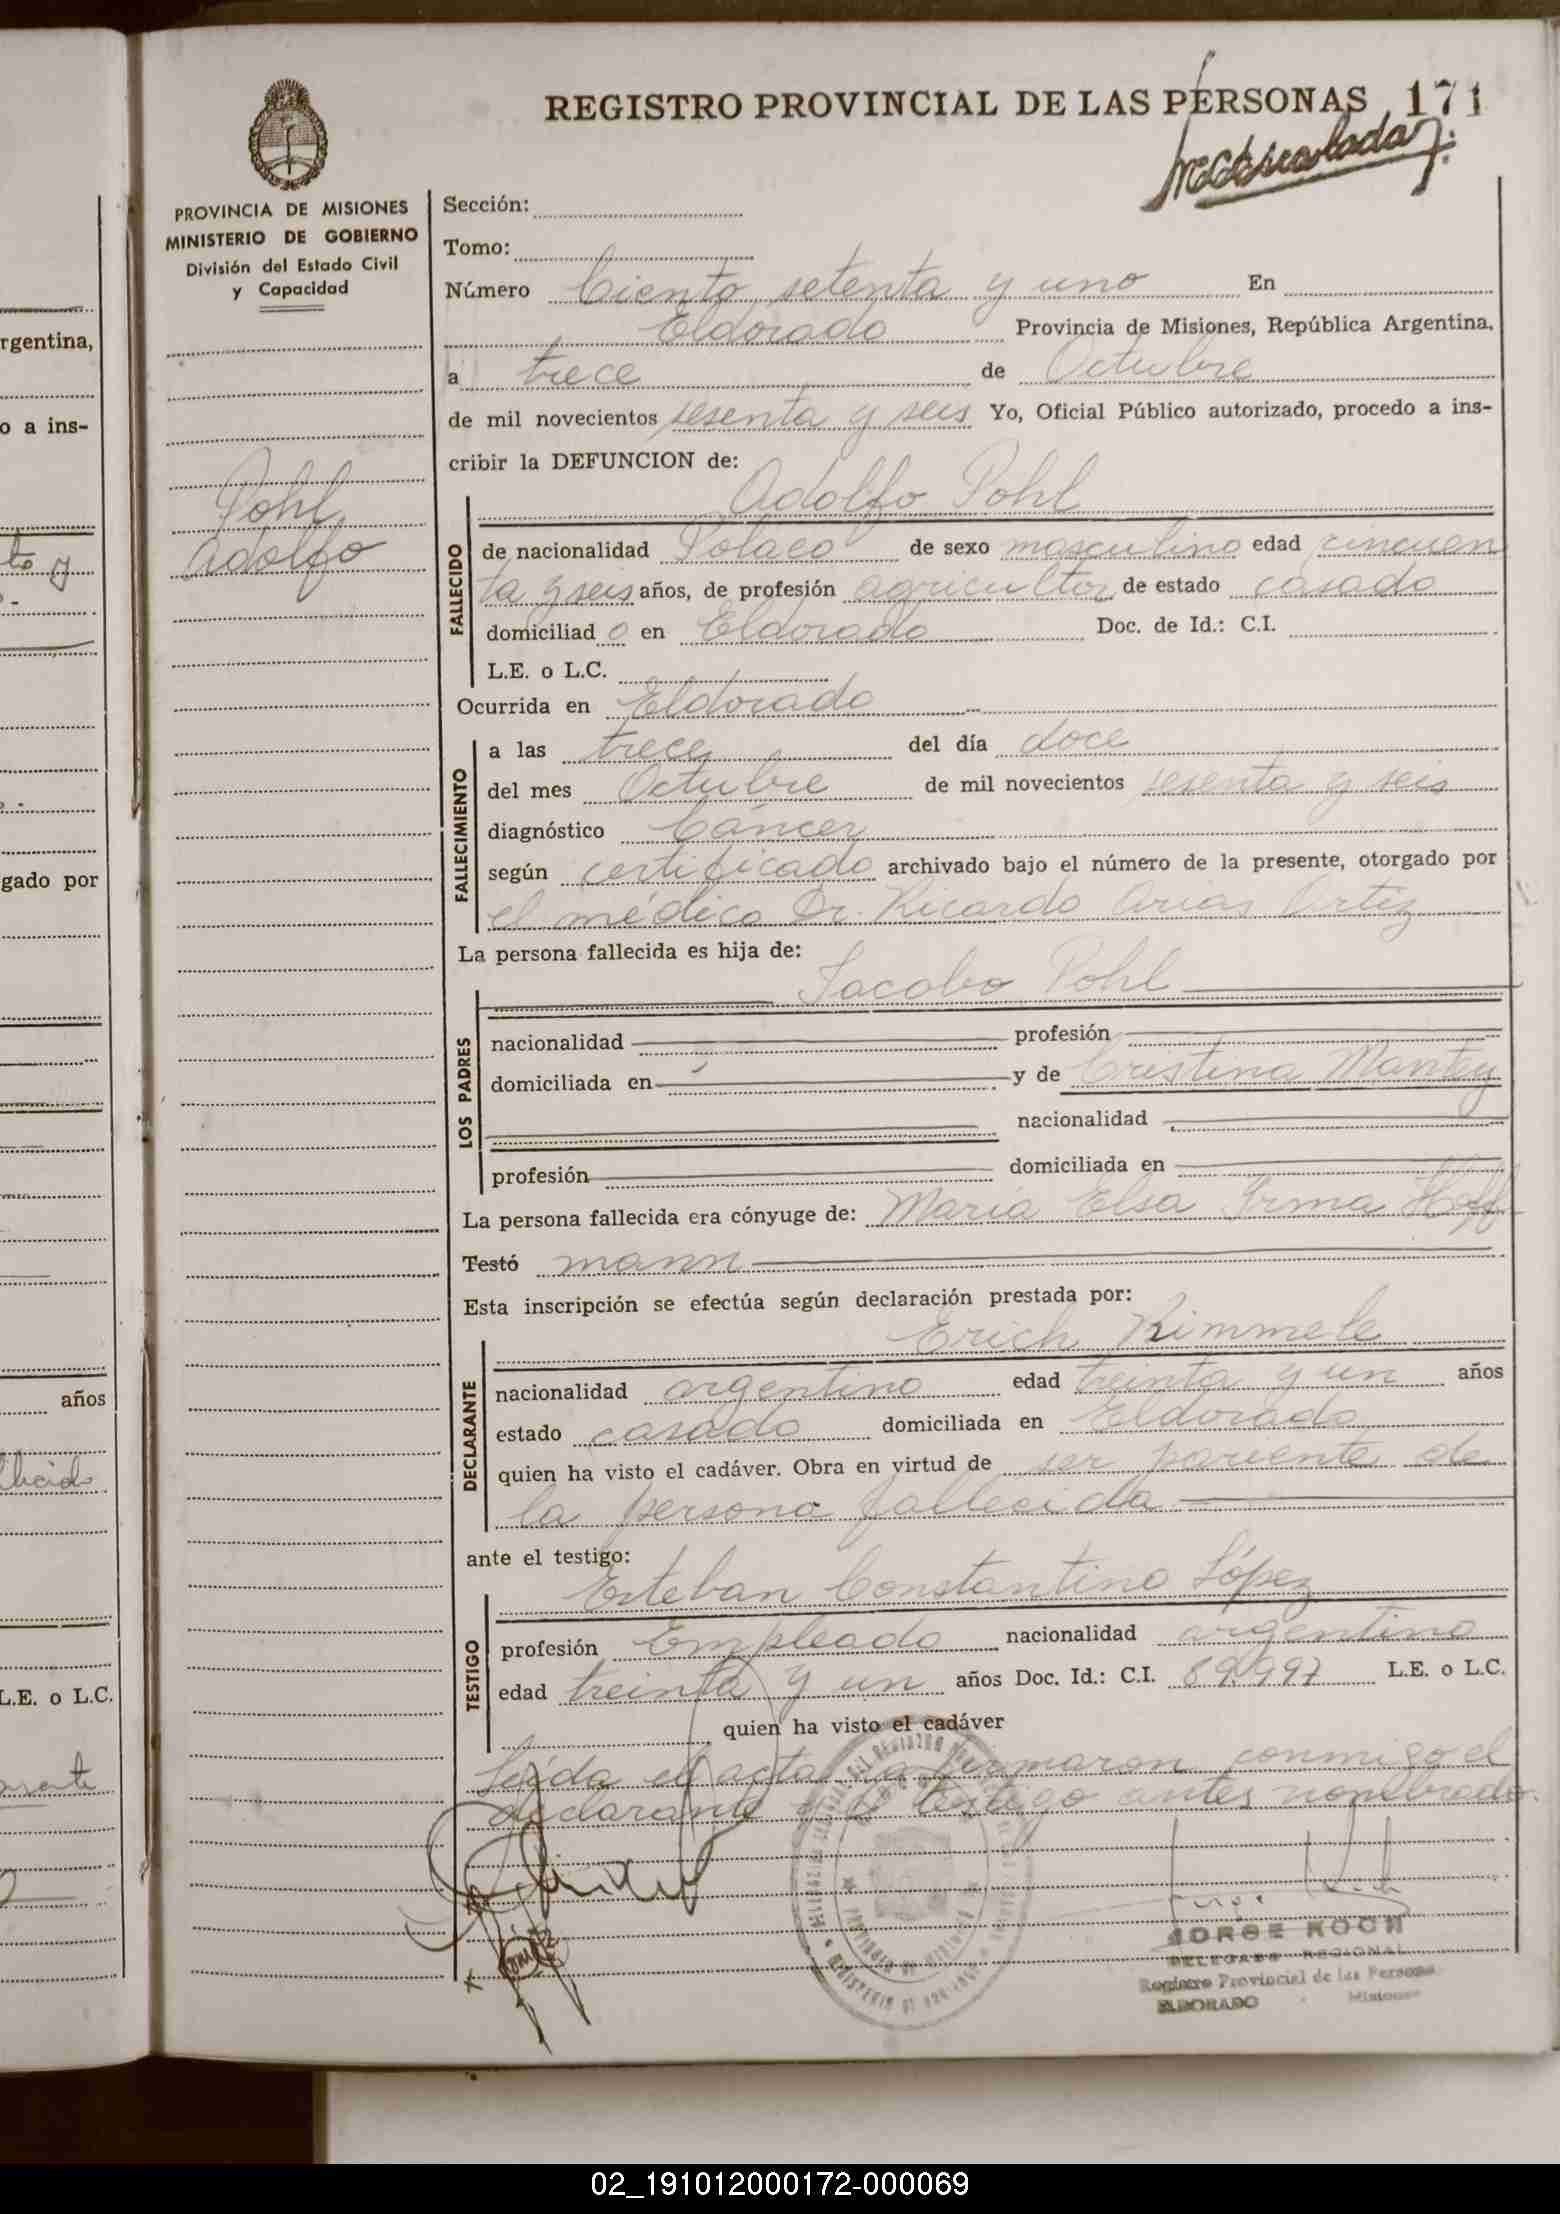 REGISTRO PROVINCIAL DE LAS PERSONAS 171
Mecanografiada
PROVINCIA DE MISIONES
MINISTERIO DE GOBIERNO
División del Estado Civil
y Capacidad
Pohl
Adolfo
Sección:
Tomo:
Número Ciento setenta y uno En
Eldorado Provincia de Misiones, República Argentina,
a trece de Octubre
de mil novecientos sesenta y seis Yo, Oficial Público autorizado, procedo a ins-
cribir la DEFUNCION de:
Adolfo Pohl
FALLECIDO
de nacionalidad Polaco de sexo masculino edad cincuen
ta y seis años, de profesión agricultor de estado casado
domiciliad o en Eldorado Doc. de Id.: C.I.
L.E. o L.C.
Ocurrida en Eldorado
FALLECIMIENTO
a las trece del día doce
del mes Octubre de mil novecientos sesenta y seis
diagnóstico Cáncer
según certificado archivado bajo el número de la presente, otorgado por
el médico Dr. Ricardo Arias Ortiz
La persona fallecida es hija de:
Jacobo Pohl
LOS PADRES
nacionalidad profesión
domiciliada en y de Cristina Mantey
nacionalidad
profesión domiciliada en
La persona fallecida era cónyuge de: María Elsa Irma Hoff
Testó mann
Esta inscripción se efectúa según declaración prestada por:
Erich Kimmele
DECLARANTE
nacionalidad argentino edad treinta y un años
estado casado domiciliada en Eldorado
quien ha visto el cadáver. Obra en virtud de ser pariente de
la persona fallecida
ante el testigo:
Esteban Constantino López
TESTIGO
profesión Empleado nacionalidad argentino
edad treinta y un años Doc. Id.: C.I. 89.997 L.E. o L.C.
quien ha visto el cadáver
Leída el acta la firmaron conmigo el
declarante y el testigo antes nombrado.
JORGE KOCH
DELEGADO REGIONAL
Registro Provincial de las Personas
ELDORADO Misiones
rgentina,
o a ins-
gado por
años
L.E. o L.C.
02_191012000172-000069